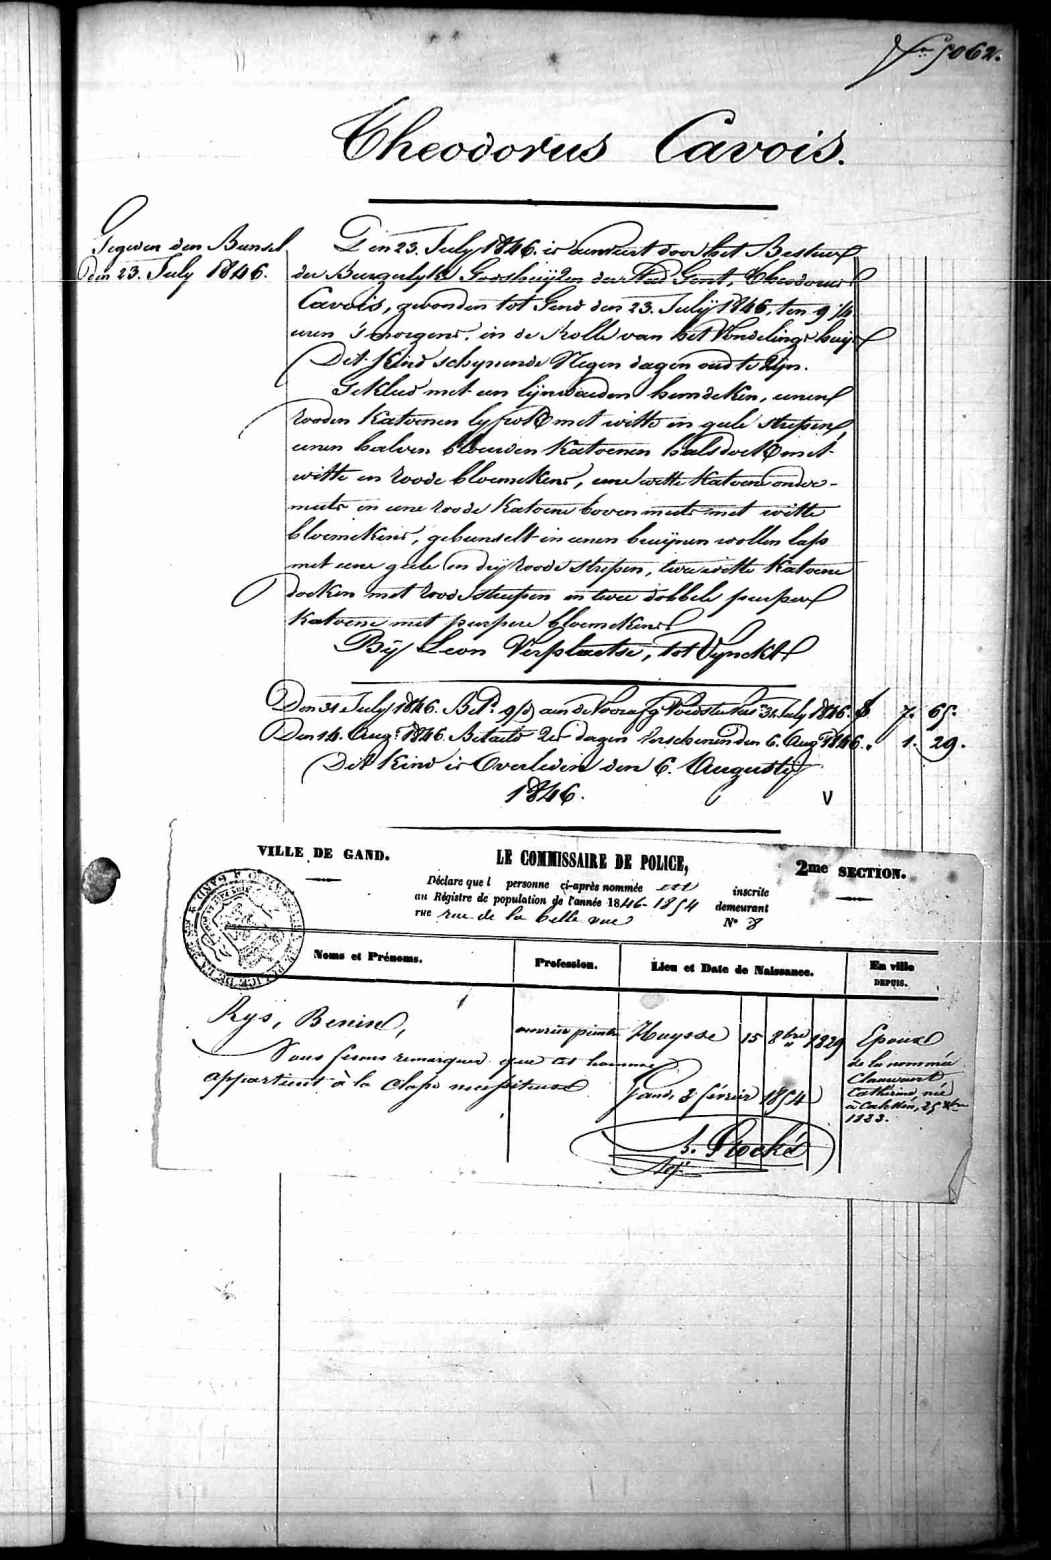 Nr 5062.
Theodorus Cavois.
Gegeven den Bunsel
den 23. July 1846.
Den 23. July 1846. is aenveert door het Bestuer
der Burgerlyke Godshuijzen der Stad Gent, Theodorus
Cavois, gevonden tot Gend den 23. Julij 1846, ten 9 1/4
uren s'morgens, in de Rolle van het Vondelings huys
Dit Kind schynende Negen dagen oud te Zijn.
Gekleed met een lijnwaeden hemdeken, eenen
rooden Katoenen lyfrok met witte en geele strepen,
eenen halven blauwen Katoenen halsdoek met
witte en roode bloemekens, eene witte Katoene onder-
muts en eene roode Katoene bovenmuts met witte
bloemekens, gebunselt in eenen bruijnen wollen lap
met eene geele en dry roode strepen, twee witte Katoene
doeken met roode streepen en twee dobbele purper
Katoene met purpere bloemekens
By Leon Verplaetse, tot Vynckt
Den 31 July 1846. Bet. 9/d aen de Voedster tot 31 July 1846. f 7. 65.
Den 14. Augt 1846. Betaeld dagen verschenen den 6. Augt 1846. " 1. 29.
Dit Kind is Overleden den 6. Augusty
1846. V
VILLE DE GAND.
LE COMMISSAIRE DE POLICE,
2me SECTION.
Déclare que l personne ci-après nommée est inscrite
au Régistre de population de l'année 1846-1854 demeurant
rue rue de la belle vue N° 8
Noms et Prénoms. Profession. Lieu et Date de Naissance. En ville DEPUIS.
Rys, Benin, ouvrier peintre Huysse 15 8bre 1829 Epoux
de la nommée
Catherine, née
25 Xbre
1823.
Nous ferons remarquer que cet homme
appartient à la Classe nécessiteuse
Gand, 3 février 1854